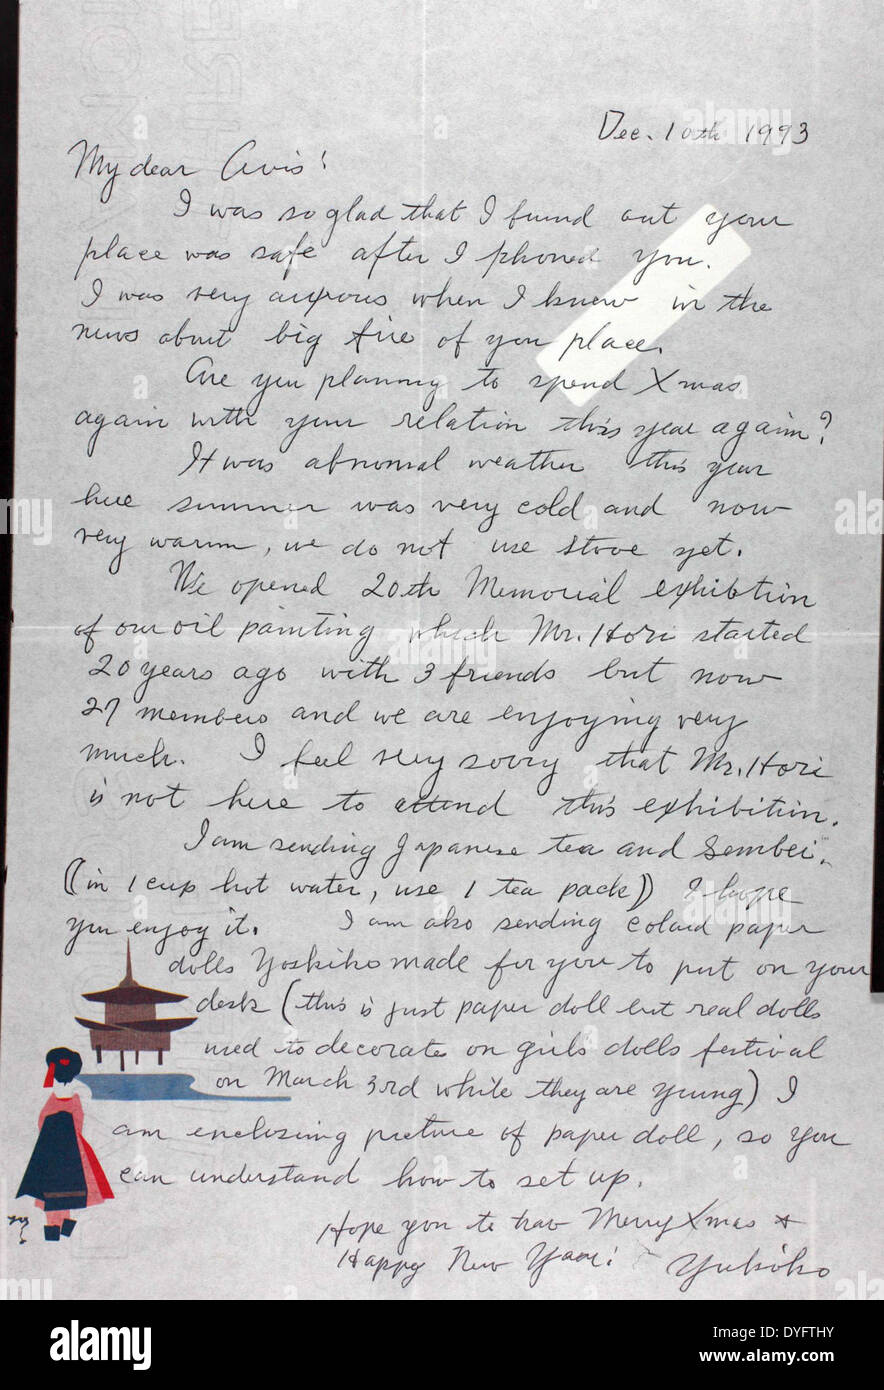 Dec. 10th 1993
My dear Avis!
I was so glad that I found out your
place was safe after I phoned you.
I was very anxious when I knew in the
news about big fire of you place.
Are you planning to spend Xmas
again with your relation this year again?
It was abnormal weather this year
here summer was very cold and now
very warm, we do not use stove yet.
We opened 20th Memorial exhibition
of our oil painting which Mr. Hori started
20 years ago with 3 friends but now
27 members and we are enjoying very
much. I feel very sorry that Mr. Hori
is not here to attend this exhibition.
I am sending Japanese tea and Sembei.
(in 1 cup hot water, use 1 tea pack) I hope
you enjoy it. I am also sending paper
dolls Yoshiko made for you to put on your
desk (this is just paper doll but real dolls
used to decorate on girls dolls festival
on March 3rd while they are young) I
am enclosing picture of paper doll, so you
can understand how to set up.
Hope you to hav Merry Xmas &
Happy New Year! Yukiko
alamy
Image ID: DYFTHY
www.alamy.com